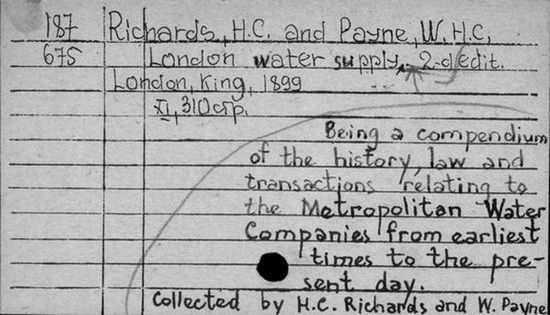 187 Richards, H.C. and Payne, W.H.C.
675 London water supply, 2-d edit.
London, King, 1899
XI, 310 стр.
Being a compendium
of the history, law and
transactions relating to
the Metropolitan Water
Companies from earliest
times to the pre-
sent day.
Collected by H.C. Richards and W. Payne